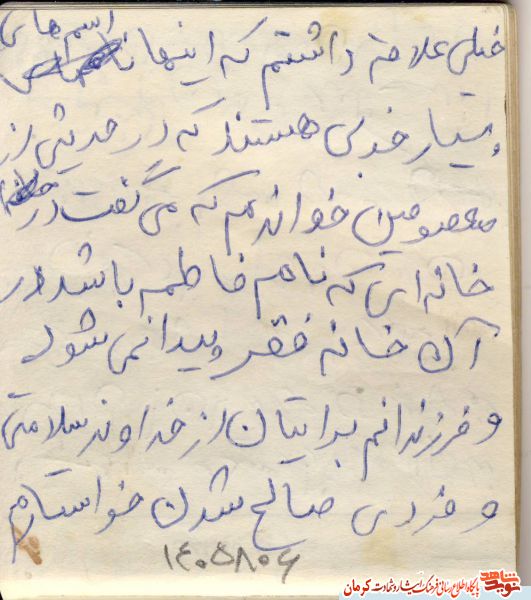 خیلی علاقه داشتم که اینها اسم های
بسیار خوبی هستند که در حدیثی از
معصومین خواندم که می گفت در
خانه ای که نام فاطمه باشد در
آن خانه فقر پیدا نمی شود
و فرزندانم برایتان از خداوند سلامتی
و فردی صالح شدن خواستارم
۱۴۰۵۸۰۶
نوید شاهد
پایگاه اطلاع رسانی فرهنگ ایثار و شهادت کرمان